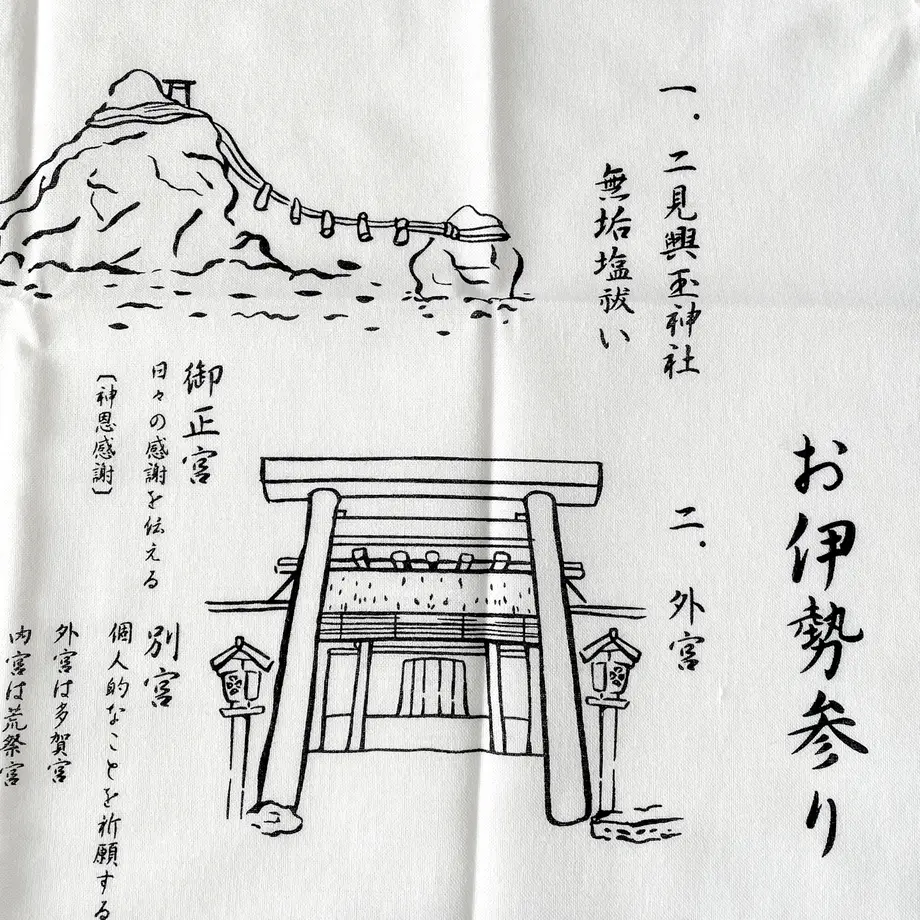 お伊勢参り
一．二見興玉神社
無垢塩祓い
二．外宮
御正宮
日々の感謝を伝える
［神恩感謝］
別宮
個人的なことを祈願する
外宮は多賀宮
内宮は荒祭宮